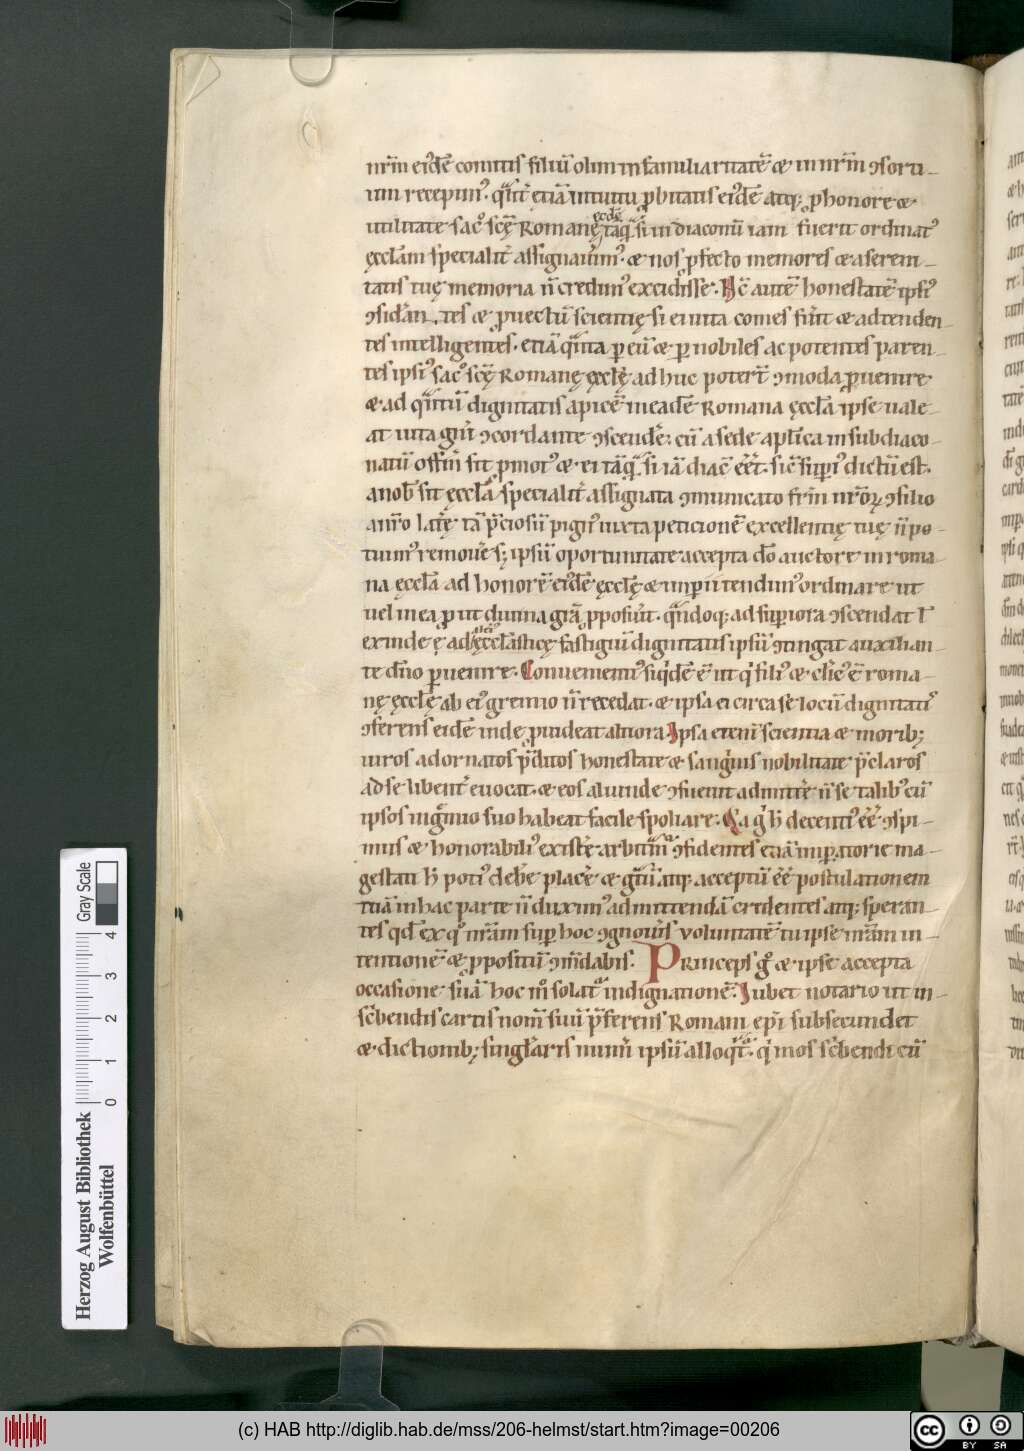 nrm̄ eidē comitis filiū olim in familiaritatē & in nrm̄ ꝯsorti-
um recepim᷒. q̄tin᷒ etiā intuitu ꝓbitatis eidē atq; ꝓ honore &
utilitate sac᷒ scę̄ Romanę ecclę tāq̄ si in diaconū iam fuerit ordinat᷒
ęcclām specialit̄ assignauim᷒. & nos ꝓfecto memores & a seren-
tatis tuę memoria n̄ credim᷒ excidisse. Hc̄ autē honestatē ipsi᷒
ꝯsidān-tes & ꝓuectū scientię si ei uita comes fūit & adtenden-
tes intelligentes. etiā q̄nta ꝑ eū & ꝑ nobiles ac potentes paren-
tes ipsi᷒ sac᷒ scę̄ Romanę ęcclę̄ ad huc poter̄t ꝯmoda ꝓuenire
& ad q̄ntū dignitatis apicē in eadē Romana ęcclā ipse uale-
at uita gūi ꝯcordante ꝯscendē; cū a sede aplīca in subdiaco-
natū
anob̄ sit ęcclā specialit̄ assignata ꝯmunicato frm̄ nrōꝝ ꝯsilio
anr̄o latē tā p̄ciosū pign᷒ iuxta peticionē excellentię tuę n̄ po-
tuim᷒ remouē s; ipsū oportunitate accepta dō auctore in roma-
na ęcclā ad honorē eidē ęcclę & impii tendim᷒ ordinare ut
uel in ea ꝓut diuina grā ꝓposūit. q̄ndoq; ad supiora ꝯscendat ł
exinde ad ęcclāsticę fastigiū dignitatis ipsū ꝯtingat auxilian-
te dn̄o ꝑuenire. Conuenienti᷒ siqdē ē ut q filī᷒ & cleric᷒ ē roma-
nę ęcclę̄ ab ei᷒ gremio n̄ recedat. & ipsa ei circa se locū dignitati᷒
ꝯferens eidē inde ꝓuideat altiora. Ipsa etenī scientia & morib;
uiros adornatos p̄ditos honestate & sanguīs nobilitate p̄claros
ad se libent̄ euocat. & eos aliunde ꝯsueuit admittē n̄ se talib᷒ cū
ipsos ingrēmio suo habeat facile spoliare. Ea g h decenti᷒ ēē ꝯspi-
mus & honorabili᷒ existē. arbitm̄ ꝯfidentes etiā impatorie ma-
gestati h poti᷒ debē placē & gr̄tū atq; acceptū ēē postulationem
tuā in hac parte n̄ duxim᷒ admittendā credentes atq; speran-
tes qd̄ ex quo nrām sup hoc ꝯgnouīs voluntatē tu ipse nrām in-
tentionē & ꝓpositū ꝯmdabis. Princeps g & ipse accepta
occasione suā hoc m solat᷒ indignationē. Jubet notario ut in-
scbendis cartis nom̄ suū p̄ferens Romani epi subsecundet
& dictionib; singlaris num̄i ipsū alloqt̄. q mos scbendi cū
Herzog August Bibliothek
Wolfenbüttel
0 1 2 3 4
Gray Scale
(c) HAB http://diglib.hab.de/mss/206-helmst/start.htm?image=00206
cc BY SA